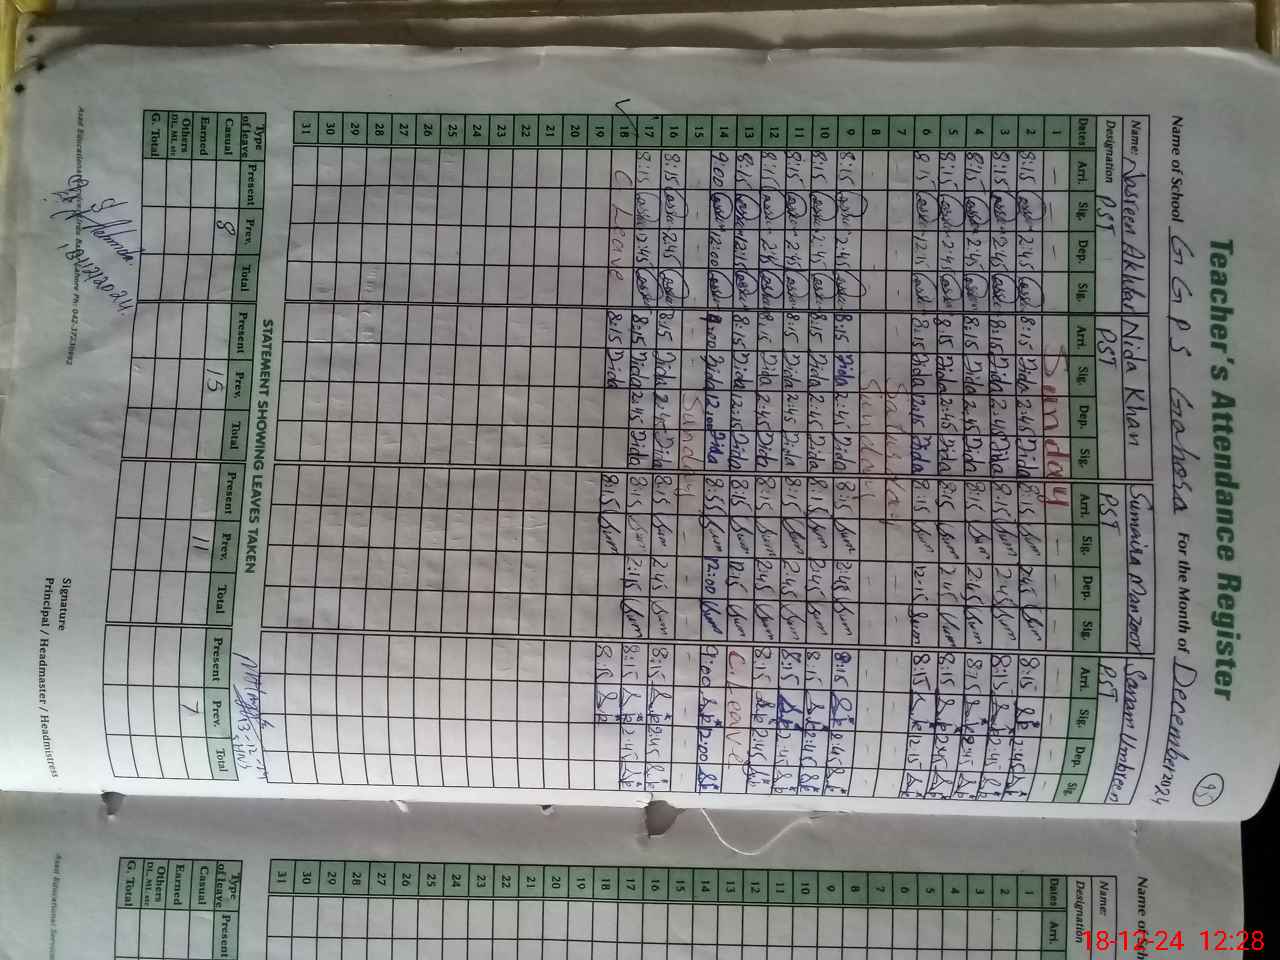 Teacher's Attendance Register
95
Name of School G G P S Gahosa For the Month of December 2024
Name: Nasreen Akhtar Nida Khan Sumaira Manzoor Sanam Umbreen
Designation PST PST PST PST
Dates Arri. Sig. Dep. Sig. Arri. Sig. Dep. Sig. Arri. Sig. Dep. Sig. Arri. Sig. Dep. Sig.
1 Sunday
2 8:15 2:45 8:15 Nida 2:45 Nida 8:15 Sum 2:45 Sum 8:15 2:45
3 8:15 2:45 8:15 Nida 2:45 Nida 8:15 Sum 2:45 Sum 8:15 2:45
4 8:15 2:45 8:15 Nida 2:45 Nida 8:15 Sum 2:45 Sum 8:15 2:45
5 8:15 2:45 8:15 Nida 2:45 Nida 8:15 Sum 2:45 Sum 8:15 2:45
6 8:15 12:15 8:15 Nida 12:15 Nida 8:15 Sum 12:15 Sum 8:15 12:15
7 Saturday
8 Sunday
9 8:15 2:45 8:15 Nida 2:45 Nida 8:15 Sum 2:45 Sum 8:15 2:45
10 8:15 2:45 8:15 Nida 2:45 Nida 8:15 Sum 2:45 Sum 8:15 2:45
11 8:15 2:45 8:15 Nida 2:45 Nida 8:15 Sum 2:45 Sum 8:15 2:45
12 8:15 2:45 8:15 Nida 2:45 Nida 8:15 Sum 2:45 Sum 8:15 2:45
13 8:15 12:15 8:15 Nida 12:15 Nida 8:15 Sum 12:15 Sum C. Leave
14 9:00 12:00 9:00 Nida 12:00 Nida 8:55 Sum 12:00 Sum 9:00 12:00
15 Sunday
16 8:15 2:45 8:15 Nida 2:45 Nida 8:15 Sum 2:45 Sum 8:15 2:45
17 8:15 2:45 8:15 Nida 2:45 Nida 8:15 Sum 2:45 Sum 8:15 2:45
18 C Leave 8:15 Nida 8:15 Sum 8:15
19
20
21
22
23
24
25
26
27
28
29
30
31
STATEMENT SHOWING LEAVES TAKEN
Type of leave Present Prev. Total Present Prev. Total Present Prev. Total Present Prev. Total
Casual 8 15 11 7
Earned
Others DL, ML etc
G. Total
18/12/2024
Signature
Principal / Headmaster / Headmistress
Name of Sch
Name:
Designation
Dates Arri.
1
2
3
4
5
6
7
8
9
10
11
12
13
14
15
16
17
18
19
20
21
22
23
24
25
26
27
28
29
30
31
Type of leave Present
Casual
Earned
Others DL, ML etc
G. Total
18-12-24 12:28